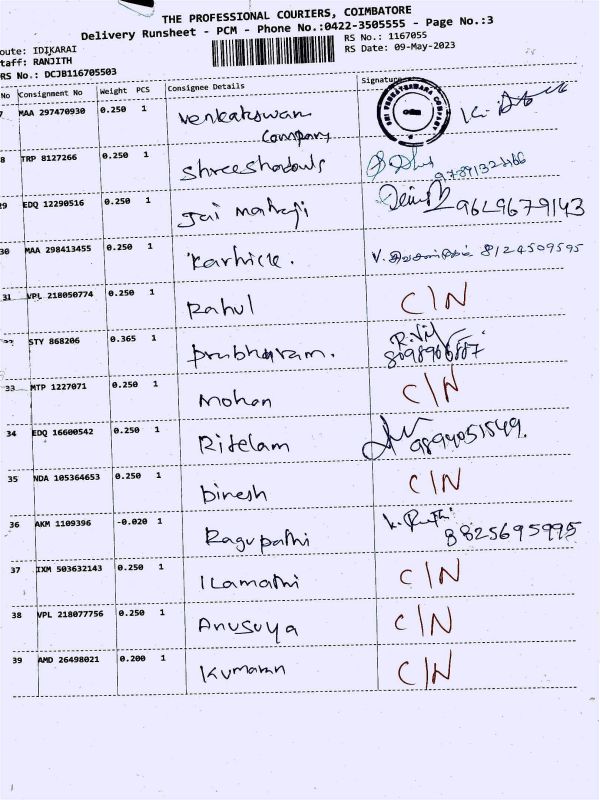 THE PROFESSIONAL COURIERS, COIMBATORE
Delivery Runsheet - PCM - Phone No.:0422-3505555 - Page No.:3
oute: IDIKARAI
RS No.: 1167055
taff: RANJITH
RS Date: 09-May-2023
RS No.: DCJB116705503
No Consignment No Weight PCS Consignee Details Signature
7 MAA 297470930 0.250 1 Venkateswara
Company
8 TRP 8127266 0.250 1 Shreeshadows
29 EDQ 12290516 0.250 1 Jai mataji 9629679143
30 MAA 298413455 0.250 1 Karhick. V. 8124509595
31 VPL 218050774 0.250 1 Rahul C/N
STY 868206 0.365 1 Prabharam.
33 MTP 1227071 0.250 1 Mohan C/N
34 EDQ 16600542 0.250 1 Ritelam 9894051549.
35 NDA 105364653 0.250 1 Dinesh C/N
36 AKM 1109396 -0.020 1 Ragupathi 8825695995
37 IXM 503632143 0.250 1 Ilamathi C/N
38 VPL 218077756 0.250 1 Anusuya C/N
39 AMD 26498021 0.200 1 Kumaran C/N